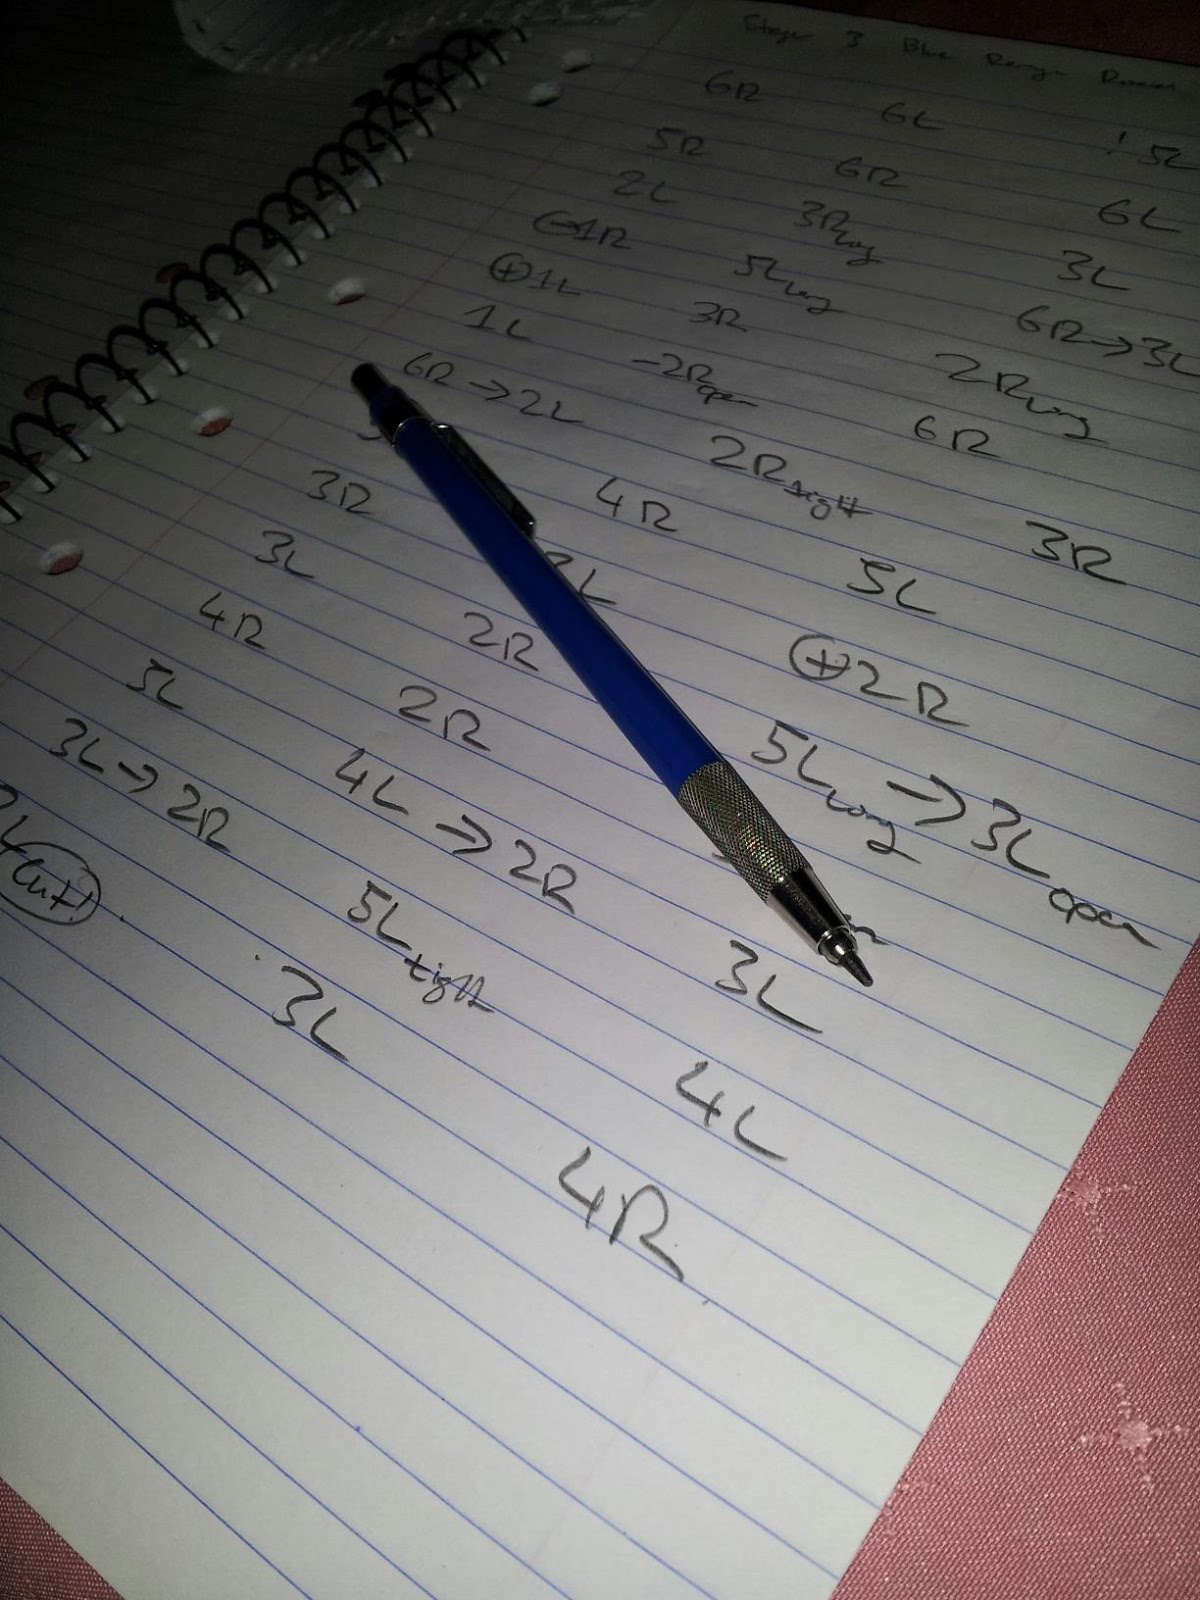 Stage 3 Blue Range
6R 6L ! 5L
5R 6R 6L
2L 3R long 3L
⊖1R 5L long 6R → 3L
⊕1L 3R 2R long
1L -2R open 6R
6R → 2L 2R tight 3R
4R 5L
3R L ⊕2R
3L 2R 5L long → 3L open
4R 2R
3L 4L → 2R 3L
3L → 2R 5L tight 4L
cut! 3L 4R